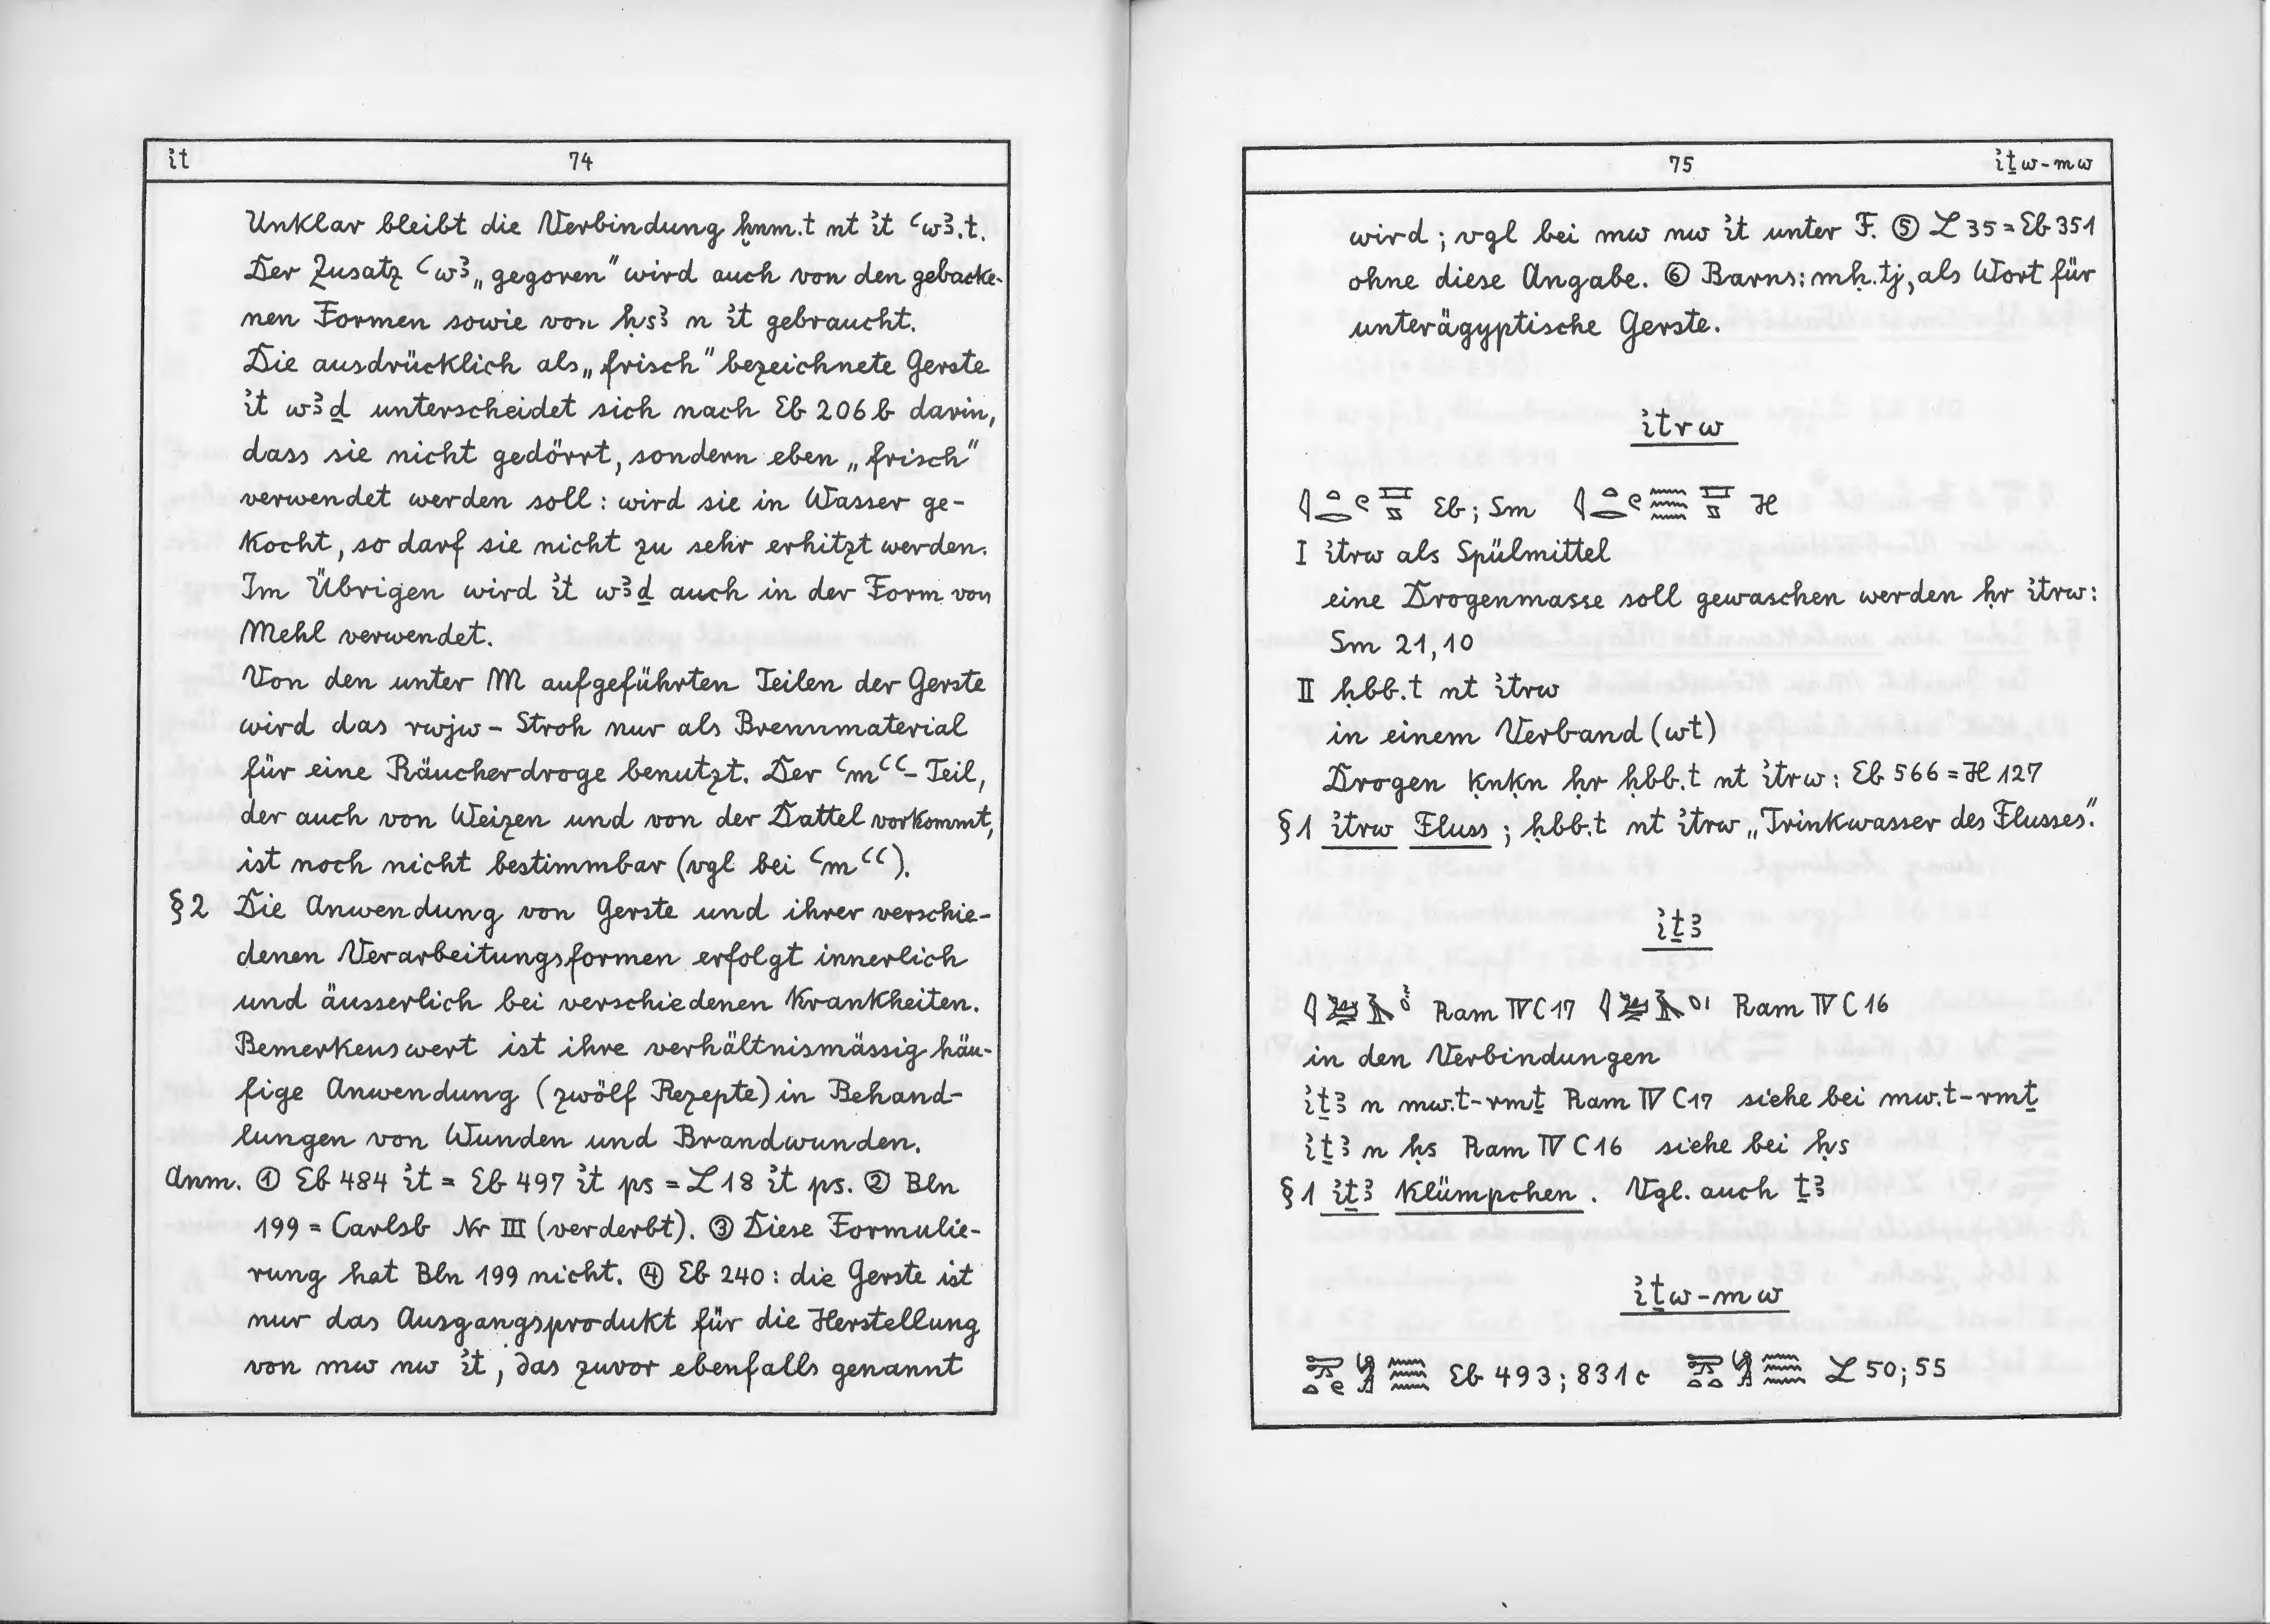 ỉt 74
Unklar bleibt die Verbindung ẖnm.t nt ỉt ꜥwꜣ.t.
Der Zusatz ꜥwꜣ „gegoren" wird auch von den gebacke-
nen Formen sowie von ḥsꜣ n ỉt gebraucht.
Die ausdrücklich als „frisch" bezeichnete Gerste
ỉt wꜣḏ unterscheidet sich nach Eb 206 b darin,
dass sie nicht gedörrt, sondern eben „frisch"
verwendet werden soll: wird sie in Wasser ge-
kocht, so darf sie nicht zu sehr erhitzt werden.
Im Übrigen wird ỉt wꜣḏ auch in der Form von
Mehl verwendet.
Von den unter M aufgeführten Teilen der Gerste
wird das rwjw - Stroh nur als Brennmaterial
für eine Räucherdroge benutzt. Der ꜥmꜥꜥ - Teil,
der auch von Weizen und von der Dattel vorkommt,
ist noch nicht bestimmbar (vgl bei ꜥmꜥꜥ).
§ 2 Die Anwendung von Gerste und ihrer verschie-
denen Verarbeitungsformen erfolgt innerlich
und äusserlich bei verschiedenen Krankheiten.
Bemerkenswert ist ihre verhältnismässig häu-
fige Anwendung (zwölf Rezepte) in Behand-
lungen von Wunden und Brandwunden.
Anm. ① Eb 484 ỉt = Eb 497 ỉt ps = L 18 ỉt ps. ② Bln
199 = Carlsb Nr III (verderbt). ③ Diese Formulie-
rung hat Bln 199 nicht. ④ Eb 240: die Gerste ist
nur das Ausgangsprodukt für die Herstellung
von mw nw ỉt, das zuvor ebenfalls genannt
75 ỉṯw-mw
wird; vgl bei mw nw ỉt unter F. ⑤ L 35 = Eb 351
ohne diese Angabe. ⑥ Barns: mḥ.tj, als Wort für
unterägyptische Gerste.
ỉtrw
Eb; Sm H
I ỉtrw als Spülmittel
eine Drogenmasse soll gewaschen werden ḥr ỉtrw:
Sm 21,10
II ḥbb.t nt ỉtrw
in einem Verband (wt)
Drogen ḳnḳn ḥr ḥbb.t nt ỉtrw: Eb 566 = H 127
§ 1 ỉtrw Fluss; ḥbb.t nt ỉtrw „Trinkwasser des Flusses".
ỉṯꜣ
Ram IV C 17 Ram IV C 16
in den Verbindungen
ỉṯꜣ n mw.t-rmṯ Ram IV C 17 siehe bei mw.t-rmṯ
ỉṯꜣ n ḥs Ram IV C 16 siehe bei ḥs
§ 1 ỉṯꜣ Klümpchen. Vgl. auch ṯꜣ
ỉṯw-mw
Eb 493; 831 c L 50; 55